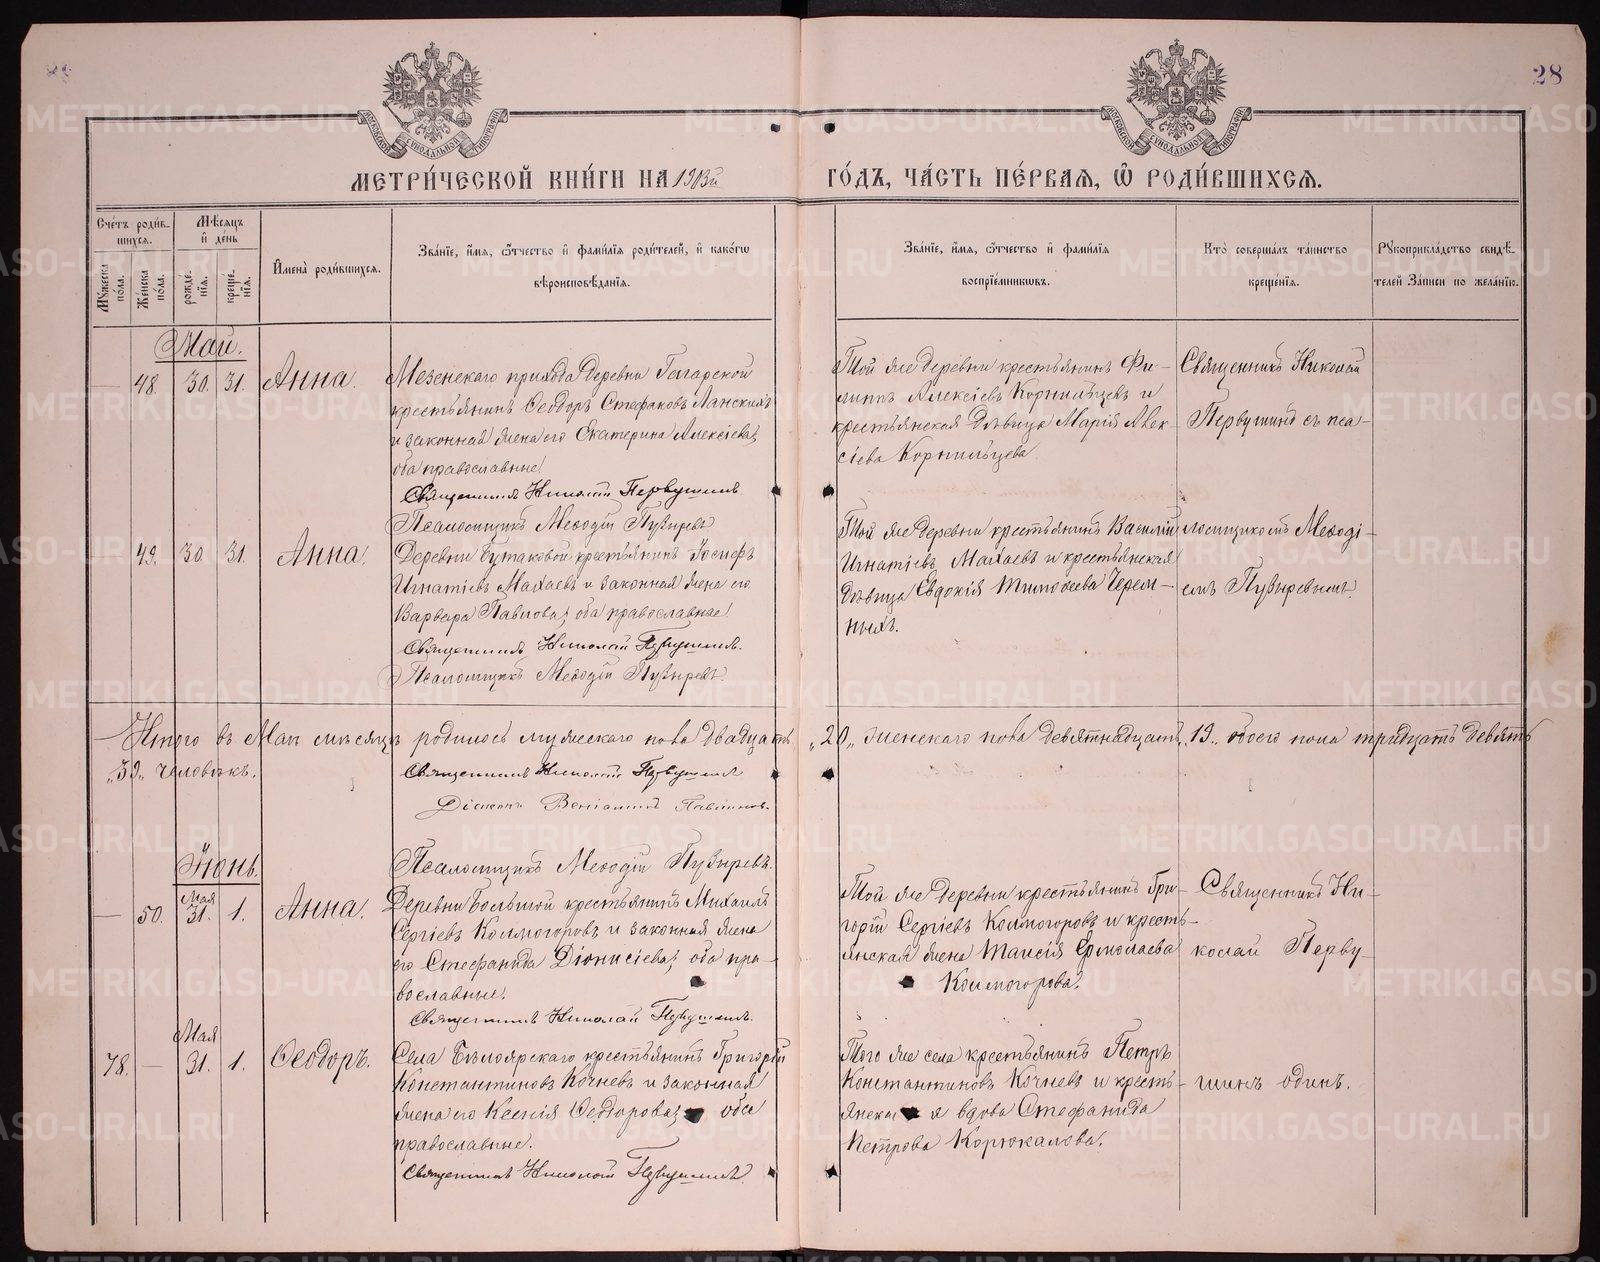 28
МОСКОВСКОЙ СѴНОДАЛЬНОЙ ТИПОГРАФІИ
МОСКОВСКОЙ СѴНОДАЛЬНОЙ ТИПОГРАФІИ
МЕТРИ́ЧЕСКОЙ КНИ́ГИ НА 1903й ГО́ДЪ, ЧА́СТЬ ПЕ́РВАѦ, Ѡ҆ РОДИ́ВШИХСѦ.
Сче́тъ роди́в-
шихсѧ.
Мѣ́сѧцъ
и҆ де́нь
Мꙋ́жеска
по́ла.
Же́нска
по́ла.
рожде-
нїѧ.
креще-
нїѧ.
И҆мена̀ роди́вшихсѧ.
Зва́нїе, и҆́мѧ, ѻ҆́тчество и҆ фами́лїѧ роди́телей, и҆ како́гѡ
вѣроисповѣ́данїѧ.
Зва́нїе, и҆́мѧ, ѻ҆́тчество и҆ фами́лїѧ
воспрїе́мникѡвъ.
Кто̀ соверша́лъ та́инство
креще́нїѧ.
Рꙋкоприкла́дство свидѣ́-
телей за́писи по жела́нїю.
Май.
— 48. 30. 31. Анна.
Мезенскаго прихода деревни Гагарской
крестьянинъ Ѳеодоръ Стефановъ Ланскихъ
и законная жена его Екатерина Алексіева;
оба православные.
Священникъ Николай Первушинъ.
Псаломщикъ Меѳодій Пузыревъ
Той же деревни крестьянинъ Фи-
липпъ Алексіевъ Корнильцевъ и
крестьянская дѣвица Марія Алек-
сіева Корнильцева.
Священникъ Николай
Первушинъ съ пса-
— 49. 30. 31. Анна.
Деревни Бутаковой крестьянинъ Іосифъ
Игнатіевъ Махаевъ и законная жена его
Варвара Павлова; оба православные.
Священникъ Николай Первушинъ.
Псаломщикъ Меѳодій Пузыревъ.
Той же деревни крестьянинъ Василій
Игнатіевъ Махаевъ и крестьянская
дѣвица Евдокія Тимоѳеева Черем-
ныхъ.
ломщикомъ Меѳоді-
емъ Пузыревымъ.
Итого въ Маѣ мѣсяцѣ родилось мужескаго пола двадцать „20„ женскаго пола девятнадцать „19„ обоего пола тридцать девять
„39„ человѣкъ.
Священникъ Николай Первушинъ
Діаконъ Веніаминъ
Псаломщикъ Меѳодій Пузыревъ.
Іюнь.
Мая
— 50. 31. 1. Анна.
Деревни Большой крестьянинъ Михаилъ
Сергіевъ Колмогоровъ и законная жена
его Стефанида Діонисіева; оба пра-
вославные.
Священникъ Николай Первушинъ.
Той же деревни крестьянинъ Гри-
горій Сергіевъ Колмогоровъ и кресть-
янская жена Таисія Ермолаева
Колмогорова.
Священникъ Ни-
колай Перву-
Мая
78. — 31. 1. Ѳеодоръ.
Села Бѣлоярскаго крестьянинъ Григорій
Константиновъ Кочневъ и законная
жена его Ксенія Ѳеодорова; оба
православные.
Священникъ Николай Первушинъ
Того же села крестьянинъ Петръ
Константиновъ Кочневъ и кресть-
янская вдова Стефанида
Петрова Корюкалова.
шинъ одинъ.
METRIKI.GASO-URAL.RU